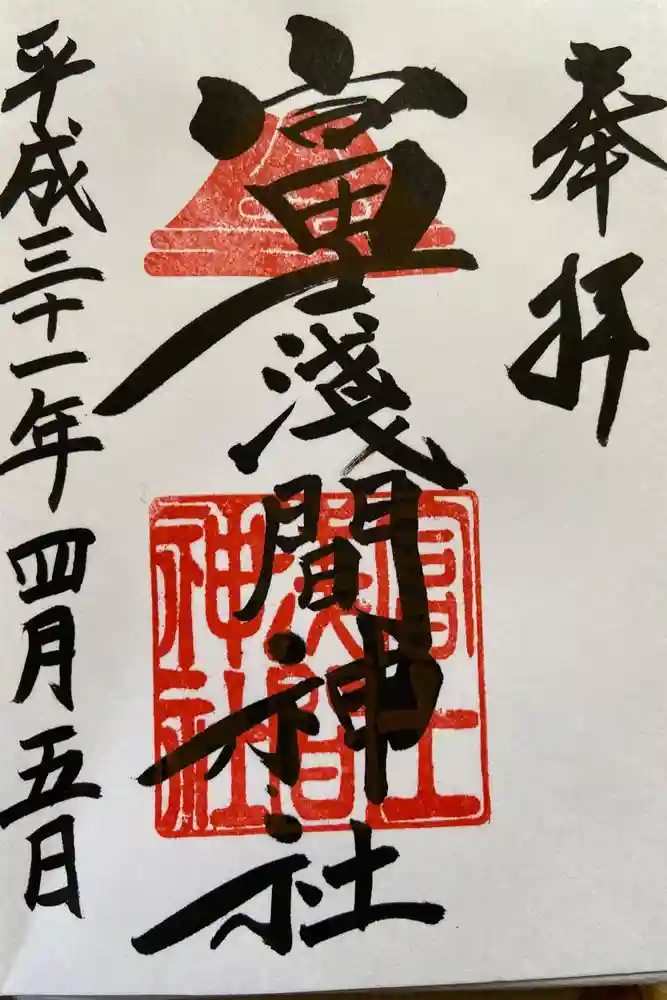 奉拝
冨士淺間神社
冨士
浅間
神社
平成三十一年四月五日